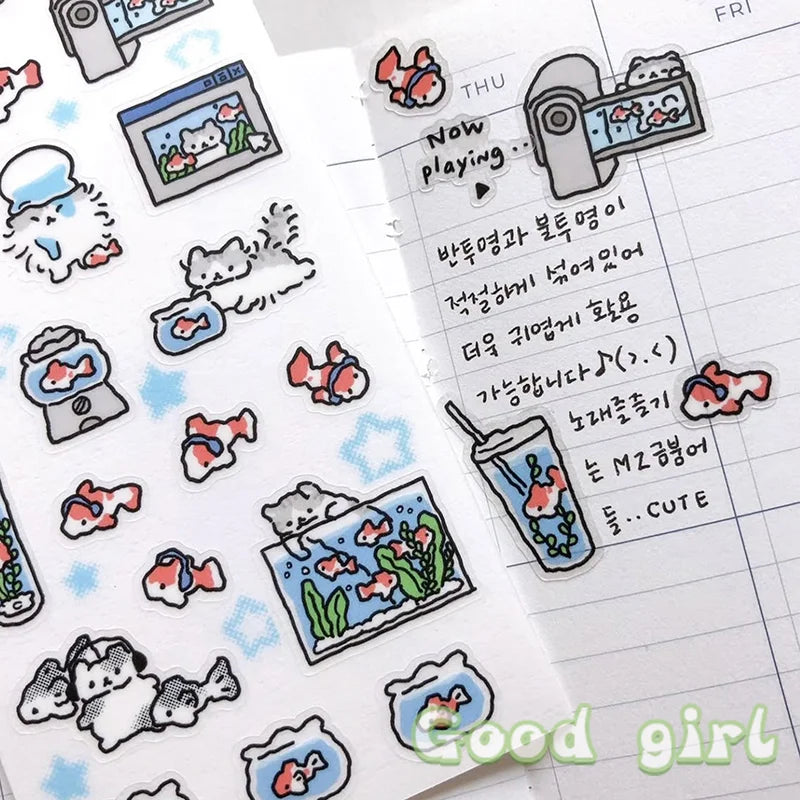 FRI
THU
Now
playing..
반투명과 불투명이
적절하게 섞여있어
더욱 귀엽게 활용
가능합니다♪(>.<)
노래즐즐기
는 MZ금붕어
들..CUTE
Good girl